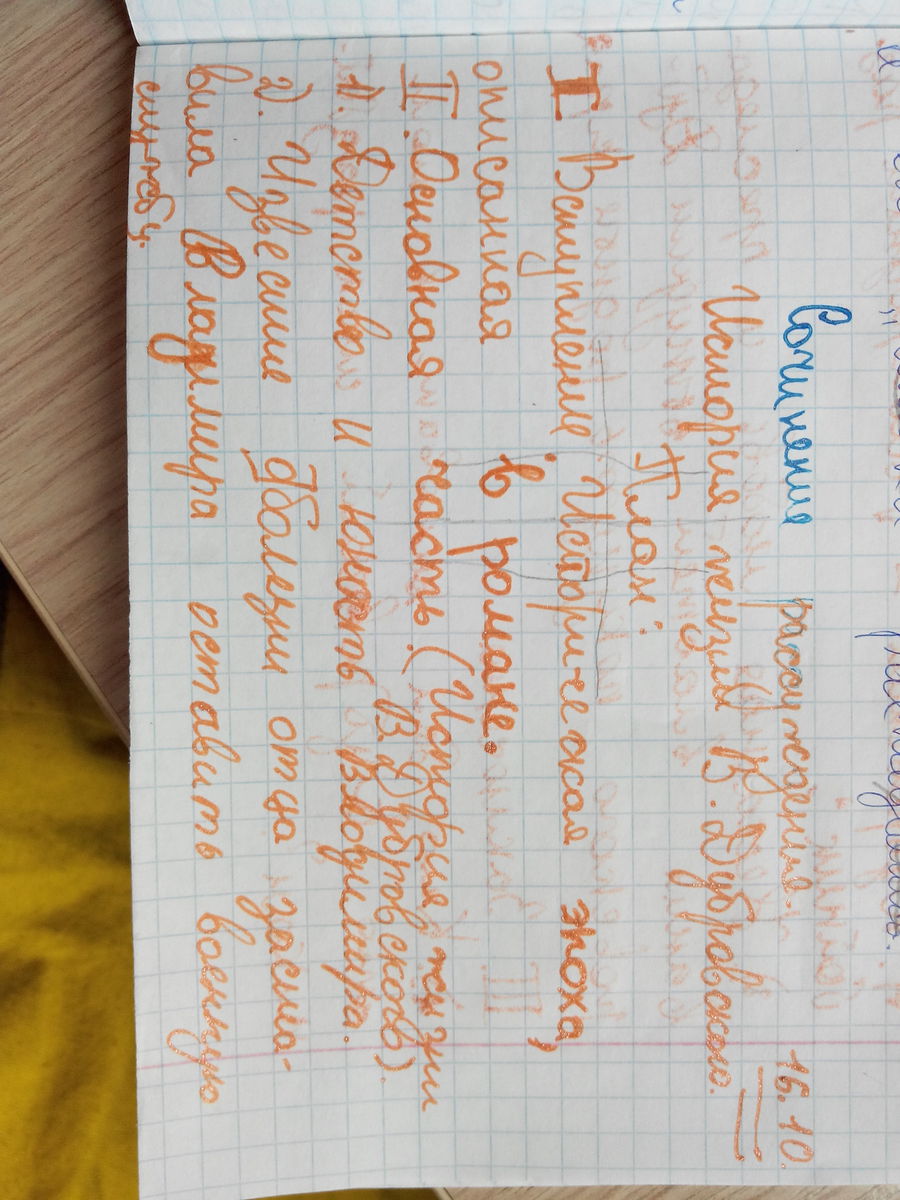 16.10.
Сочинение рассуждение.
История жизни В. Дубровского.
План:
I Вступление. Истори-ческая эпоха,
описанная в романе.
II. Основная часть. (История жизни
В. Дубровского).
1). Детство и юность Владимира.
2). Известие о болезни отца заста-
вила Владимира оставить военную
службу.